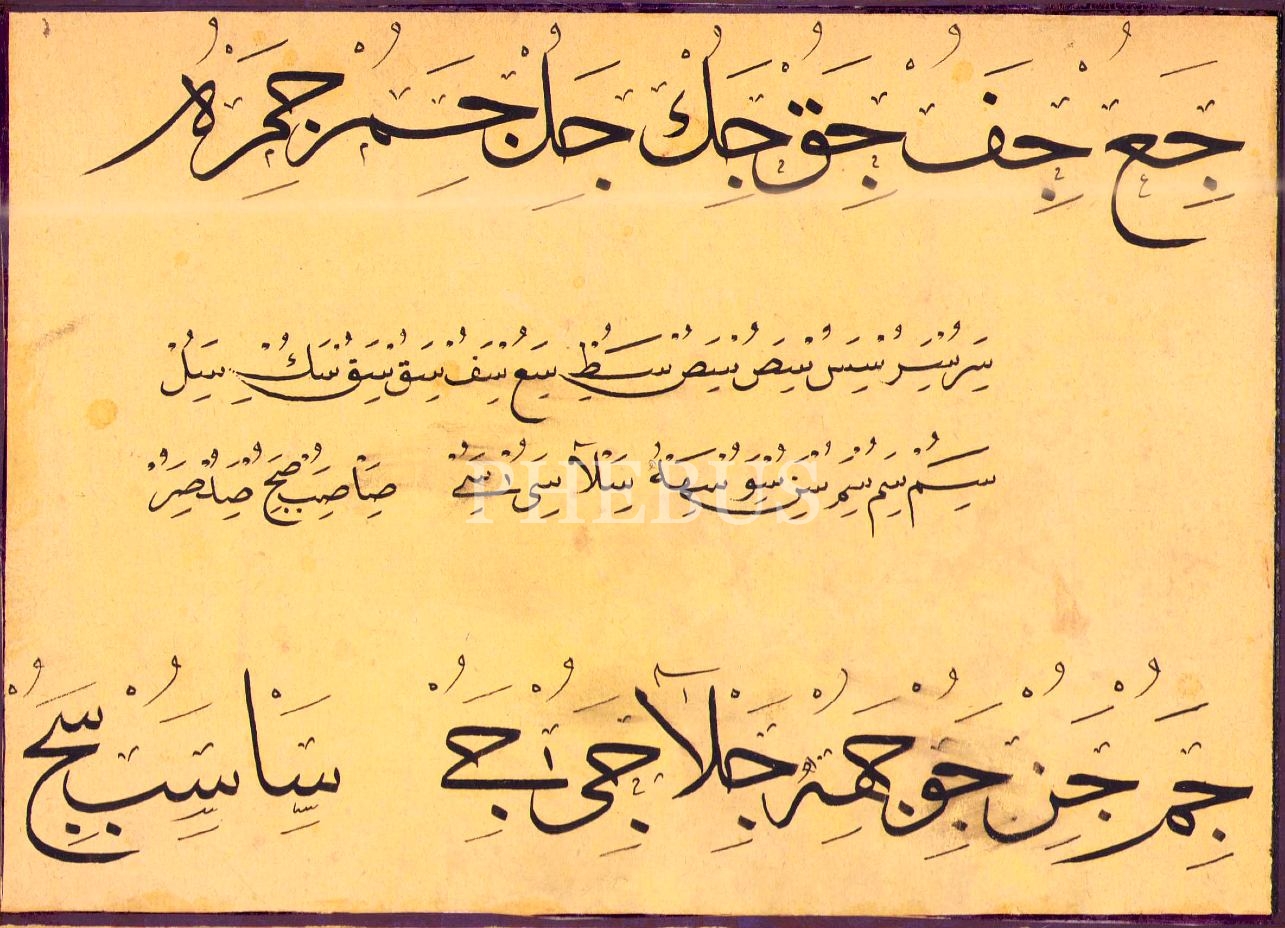 جع جف جق جك جل جم
سر سر سس سص سص سط سع سف سق سق سك سل
سم سم سم سن سو سه سلا سى سے صا صب صح صد صر
PHEBUS
جم جن جو جه جلا جى جے سا سب سح